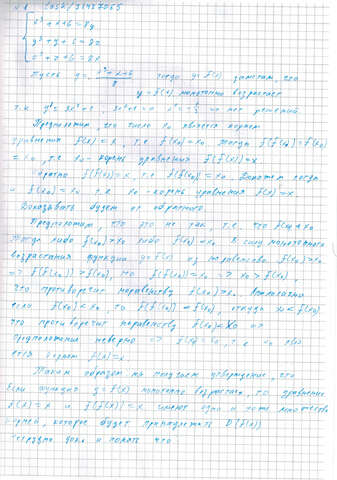 x³ + x + 6 = 8y
y³ + y + 6 = 8z
z³ + z + 6 = 8x
Пусть y = (x³ + x + 6)/8 тогда y = f(x) заметим, что
y = f(x) монотонно возрастает
т.к. 3x² + 1 нет решений.
Предположим, что число x₀ является корнем
уравнения f(x) = x, т.е. f(x₀) = x₀, тогда f(f(x₀)) = f(x₀)
= x₀, т.е. x₀ - корень уравнения f(f(x)) = x
f(f(x)) = x, т.е. f(f(x₀)) = x₀. Докажем тогда
и f(x₀) = x₀ т.е. x₀ - корень уравнения f(x) = x
Доказывать будем от обратного.
Предположим, что это не так, т.е. что f(x₀) ≠ x₀
Тогда либо f(x₀) > x₀ либо f(x₀) < x₀. В силу монотонного
возрастания функции y = f(x) из неравенства f(x₀) > x₀
=> f(f(x₀)) > f(x₀), но f(f(x₀)) = x₀ => x₀ > f(x₀),
что противоречит неравенству f(x₀) > x₀. Аналогично
если f(x₀) < x₀, то f(f(x₀)) < f(x₀), откуда x₀ < f(x₀),
что противоречит неравенству f(x₀) < x₀ =>
предположение неверно => f(x₀) = x₀, т.е. x₀
является корнем f(x) = x.
Таким образом мы получаем утверждение, что
если функция y = f(x) монотонно возрастает, то уравнение
f(x) = x и f(f(x)) = x имеют одно и тоже множество
корней, которое будет принадлежать D(f(x))
Нетрудно и понять что